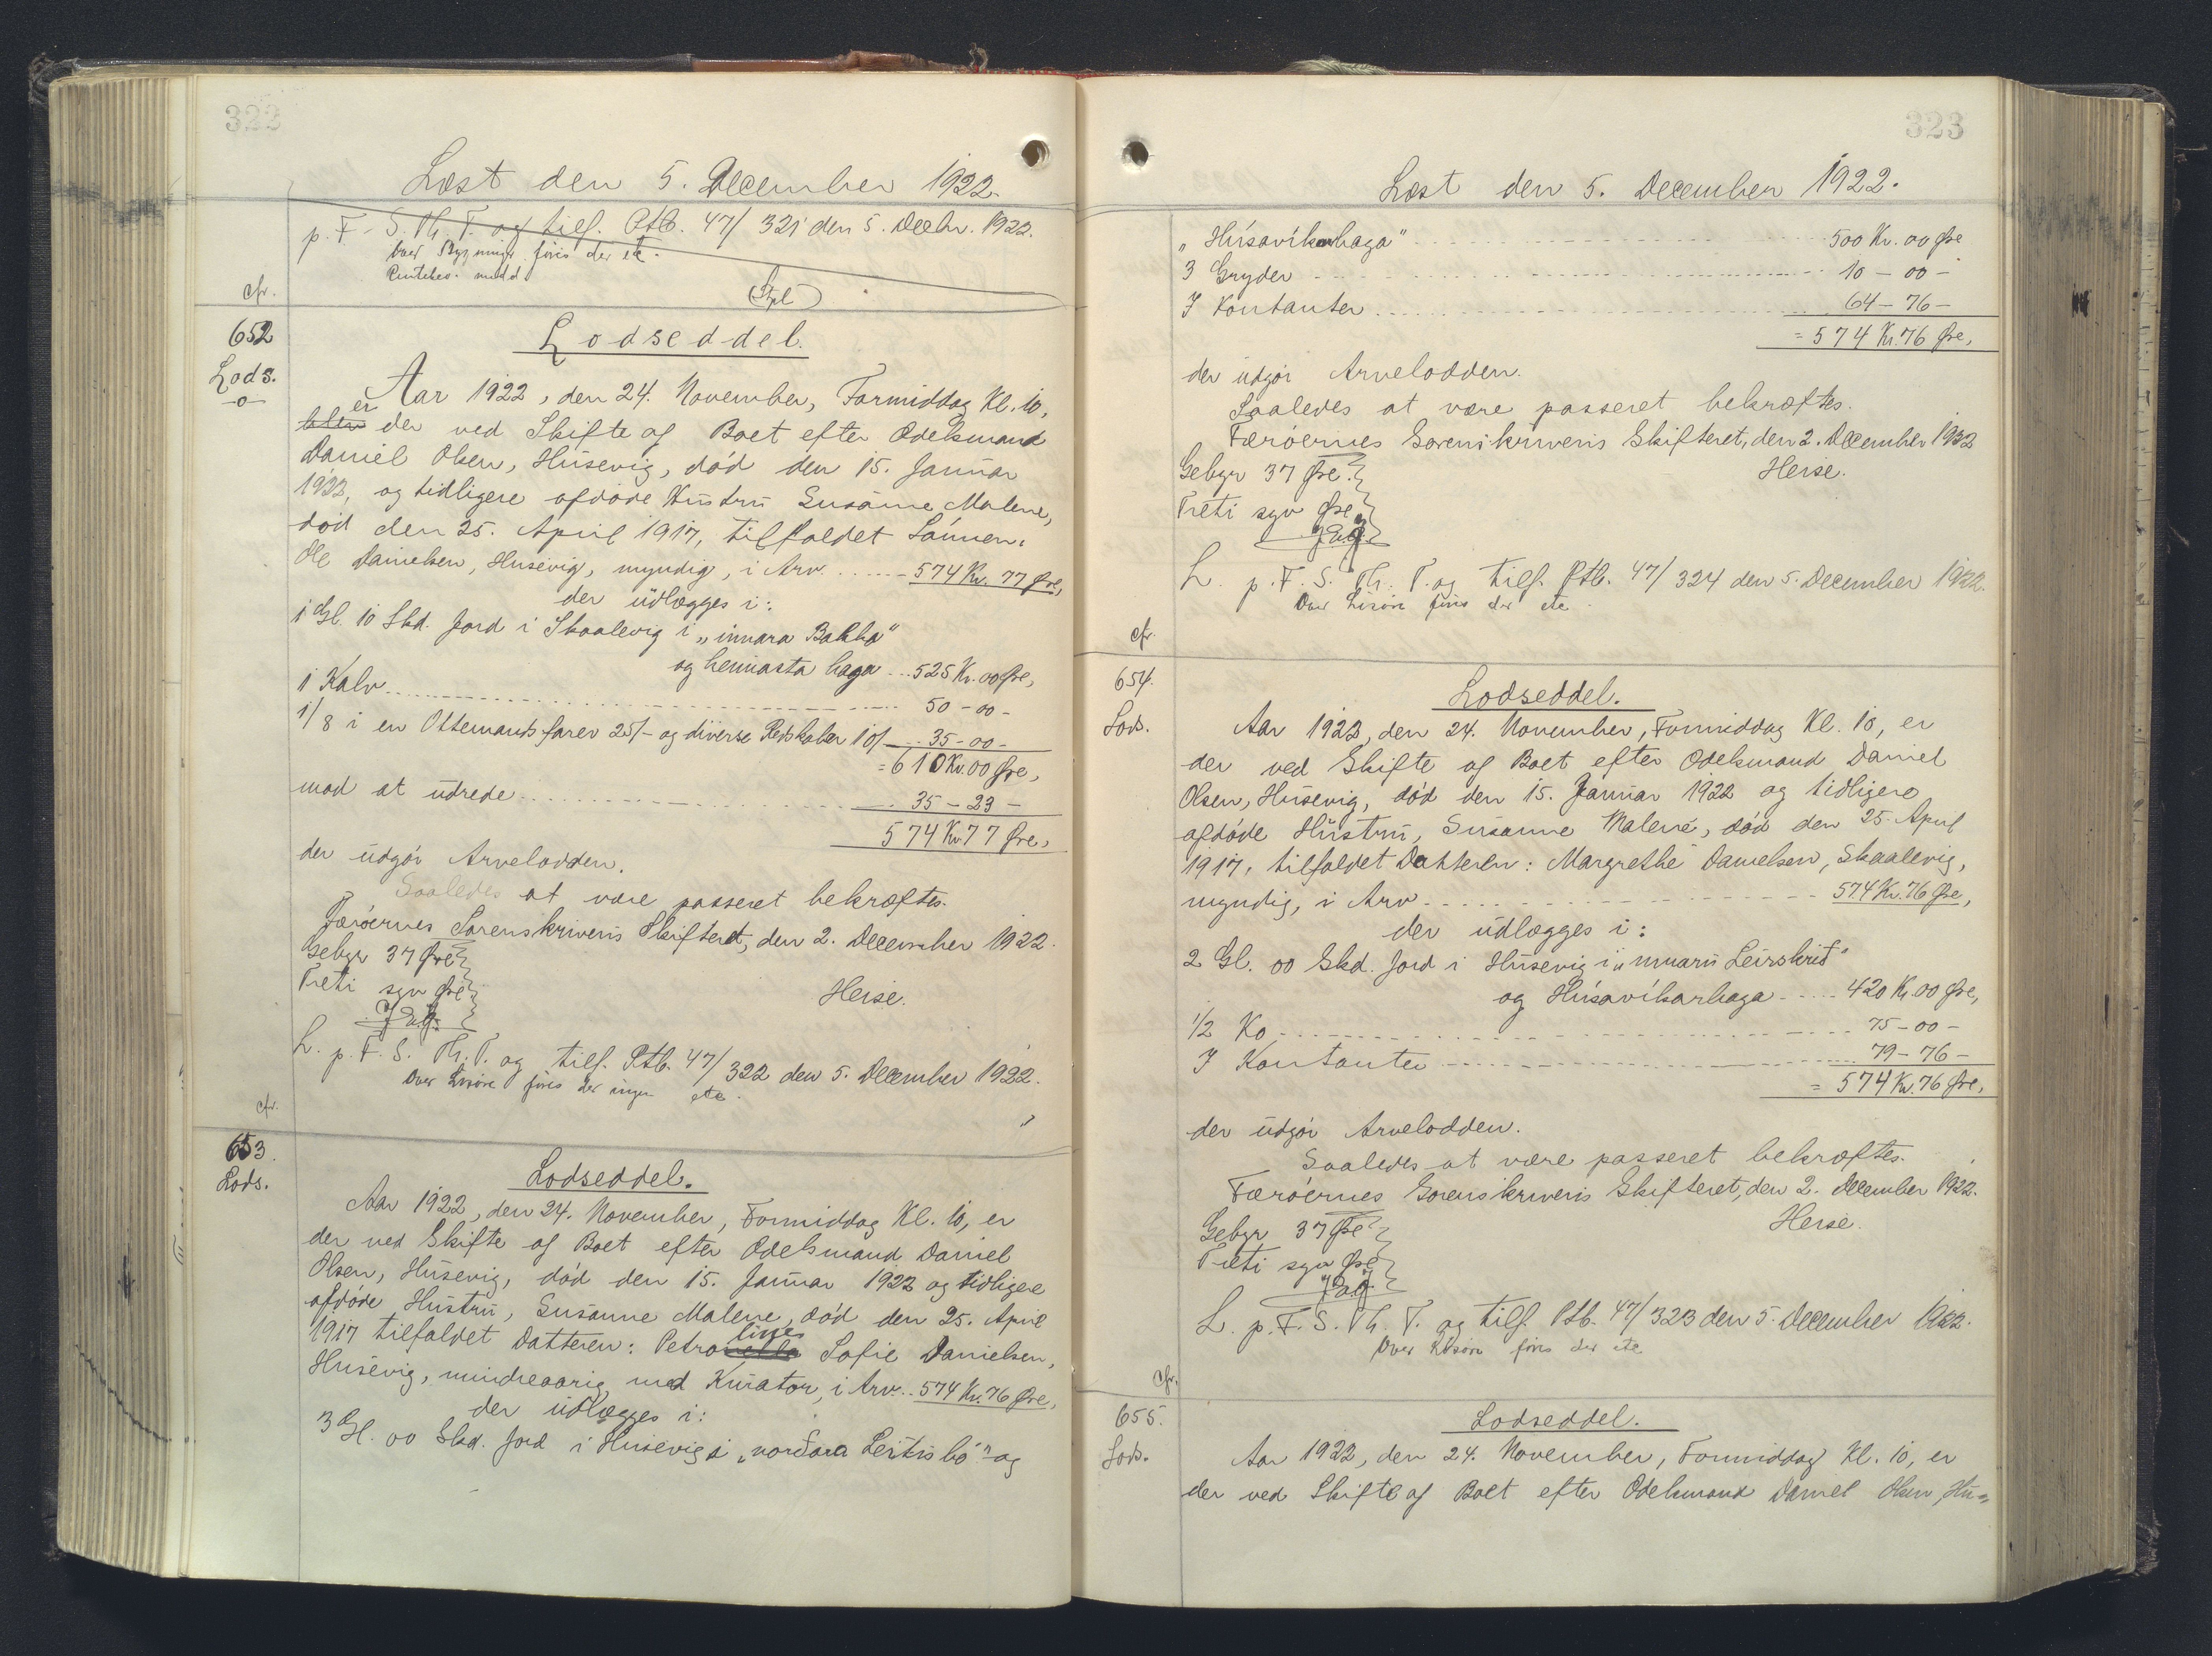 322
Læst den 5. December 1922.
p. F. S. Th. T. og tilf. Ptb. 47/321 den 5. Decbr. 1922.
Over Bygninger føris der etc.
cfr.
652
Lods.
Lodseddel.
Aar 1922, den 24. November, Formiddag Kl. 10,
er
blev der ved Skifte af Boet efter Odelsmand
Daniel Olsen, Húsevig, død den 15. Januar
1922, og tidligere afdøde Hustru Susanne Malene,
død den 25. April 1917, tilfaldet Sønnen:
Ole Danielsen, Husevig, myndig, i Arv ..... 574 Kr. 77 Øre,
der udlægges i:
1 Gl. 10 Skd. Jord i Skaalevig i „innara Bakka"
og heimasta haga ... 525 Kr. 00 Øre,
1 Kalv ..... 50 - 00 -
1/8 i en Ottemandsfarer 25/- og diverse Redskaber 10/- ... 35 - 00 -
= 610 Kr. 00 Øre,
mod at udrede ..... 35 - 23 -
574 Kr. 77 Øre,
der udgør Arvelodden.
Saaledes at være passeret bekræftes.
Færøernes Sorenskriveris Skifteret, den 2. December 1922.
Gebyr 37 Øre
Treti syv Øre
Heise.
L. p. F. S. Th. T. og tilf. Ptb. 47/322 den 5. December 1922.
Over Løsøre føris der ingen etc.
cfr.
653.
Lods.
Lodseddel.
Aar 1922, den 24. November, Formiddag Kl. 10, er
der ved Skifte af Boet efter Odelsmand Daniel
Olsen, Húsevig, død den 15. Januar 1922 og tidligere
afdøde Hustru, Susanne Malene, død den 25. April
line
1917 tilfaldet Datteren: Petronella Sofie Danielsen,
Husevig, mindreaarig med Kurator, i Arv ... 574 Kr. 76 Øre,
der udlægges i:
3 Gl. 00 Skd. Jord i Husevig i „norðara Leitisbø" og
323
Læst den 5. December 1922.
„Húsavíkarhaga" ..... 500 Kr. 00 Øre
3 Gryder ..... 10 - 00 -
I Kontanter ..... 64 - 76 -
= 574 Kr. 76 Øre,
der udgør Arvelodden.
Saaledes at være passeret bekræftes.
Færøernes Sorenskriveris Skifteret, den 2. December 1922
Gebyr 37 Øre
Heise.
Treti syv Øre
L. p. F. S. Th. T. og tilf. Ptb. 47/324 den 5. December 1922.
Over Løsøre føris der etc.
cfr.
654.
Lods.
Lodseddel.
Aar 1922, den 24. November, Formiddag Kl. 10, er
der ved Skifte af Boet efter Odelsmand Daniel
Olsen, Húsevig, død den 15. Januar 1922 og tidligere
afdøde Hustru, Susanne Malene, død den 25. April
1917, tilfaldet Datteren: Margrethe Danielsen, Skaalevig,
myndig, i Arv ..... 574 Kr. 76 Øre,
der udlægges i:
2 Gl. 00 Skd. Jord i Húsevig i „ Leirskrið"
og Húsavíkarhaga ..... 420 Kr. 00 Øre,
1/2 Ko ..... 75 - 00 -
I Kontanter ..... 79 - 76 -
= 574 Kr. 76 Øre,
der udgør Arvelodden.
Saaledes at være passeret bekræftes.
Færøernes Sorenskriveris Skifteret, den 2. December 1922.
Gebyr 37 Øre
Heise.
Treti syv Øre
L. p. F. S. Th. T. og tilf. Ptb. 47/323 den 5. December 1922.
Over Løsøre føris der etc
cfr.
655.
Lods.
Lodseddel.
Aar 1922, den 24. November, Formiddag Kl. 10, er
der ved Skifte af Boet efter Odelsmand Daniel Olsen, Hú-